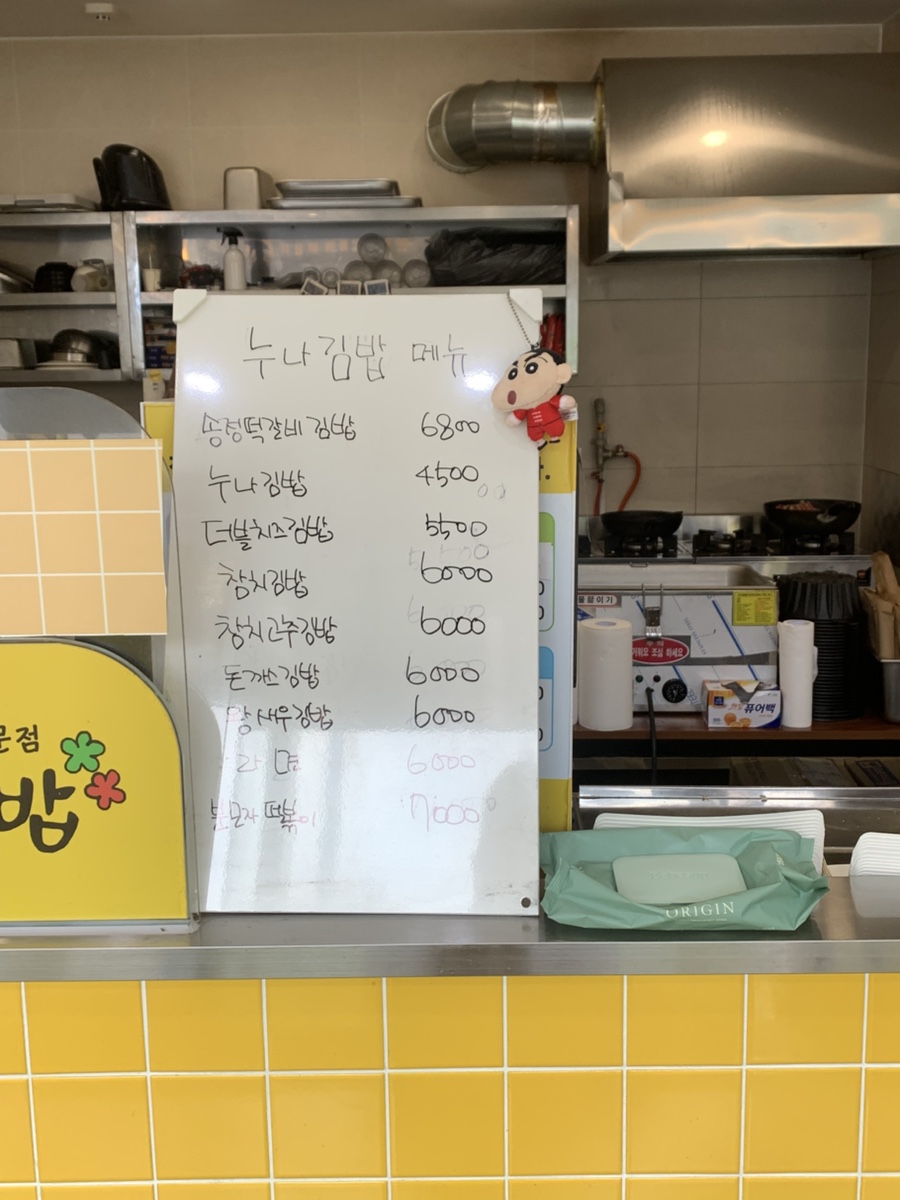 누나김밥 메뉴
송정떡갈비김밥 6800
누나김밥 4500
더블치즈김밥 5500
참치김밥 6000
참치고추김밥 6000
돈까스김밥 6000
왕새우김밥 6000
라면 6000
분모자 떡볶이 7000
문점
밥
물끓이기
주의
뜨거워요 조심 하세요
퓨어백
ORIGIN